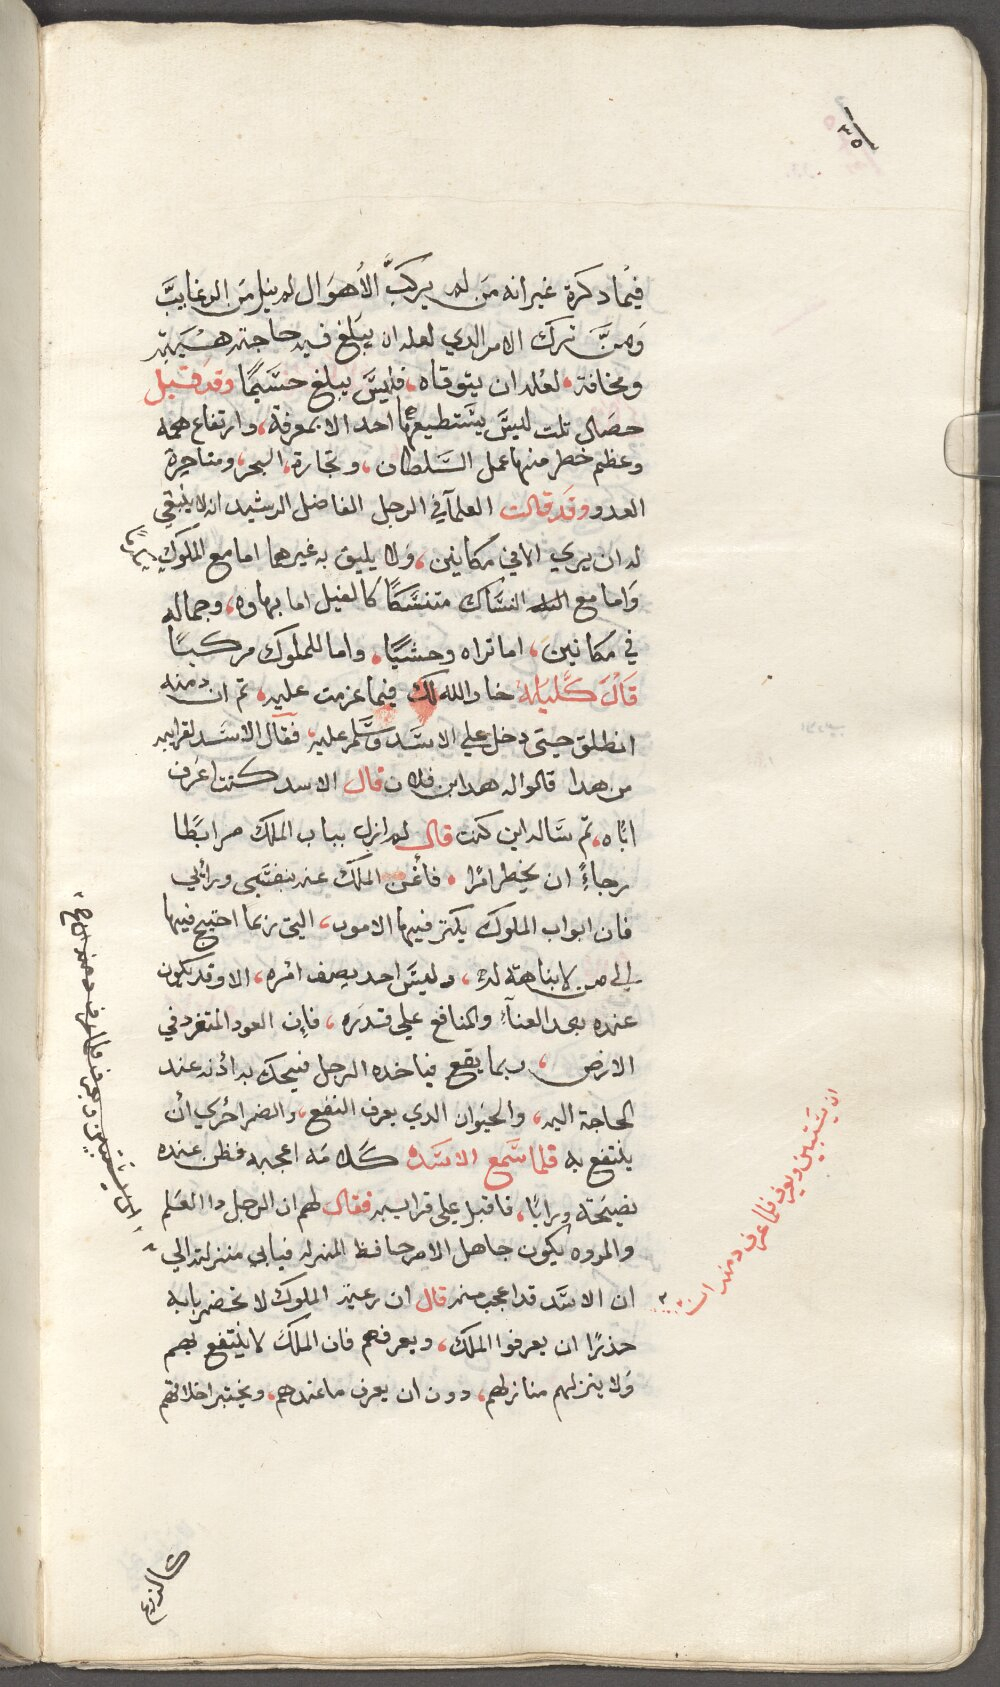 ٣٥
فيما دكرة غير انه من لم يركب الأهوال لم ينل من الرغايب
ومن ترك الامر الدي لعله ان يبلغ فيه حاجته هيبته
ومخافة، لعله ان يتوقاه، فليس يبلغ حسيمًا وقد قيل
حصال تلت ليس يستطيعها احد الا بمعرفة، وارتفاع همه
وعظم خطر منها عمل السلطان، وتجارة، البحر، ومناجرة
العدو وقد قالت العلمآ في الرجل الفاضل الرشيد انه لا ينبغي
له ان يري الا في مكانين، ولا يليق به غيرهما اما مع الملوك مكرمًا
واما مع النساك متنسكًا كالفيل اما بهاوه، وجماله
في مكانين، اما تراه وحشيًا، واما للملوك مركبًا
قال كليله خار الله لك فيما عزمت عليه، تم ان دمنه
انطلق حيتى دخل علي الاسد وسلم عليه، فقال الاسد لقرايبه
من هدا قالوا له هدا ابن فلان قال الاسد كنت اعرف
اباه، تم ساله اين كنت قال لم ازل بباب الملك مرابطًا
رجاءً ان يخطر امرًا، فأعن الملك عنه بنفسي ورائي
فان ابواب الملوك يكتر فيها الامور، اليتي ربما احتيج فيها
الي من لا بناهة له، وليس احد يصف امره، الا وقد يكون
عنده بعد العنآء والمنافع علي قدره، فإن العود المتفرد في
الارض، ربما يقع فياخده الرجل فيحك به ادنه عند
الحاجة اليه، والحيوان الدي يعرف النفع، والضر احري أن
ينتفع به فلما سمع الاسد كلامه اعجبه فظن عنده
نصيحة ورايًا، فاقبل علي قرايبه فقال لهم ان الرجل دا العلم
والمروه يكون جاهل الامر حافظ المنزله فيابي منزلته الي
ان الاسد قد اعجب منه قال ان رعية الملوك لا تحضر بابه
حذرًا ان يعرفوا الملك، ويعرفهم فان الملك لا ينتفع بهم
ولا ينزلهم منازلهم، دون ان يعرف ما عندهم، ويختبر اخلاقهم
ان يستبين ويعرف فلما عرف دمنه ان
كالزرع